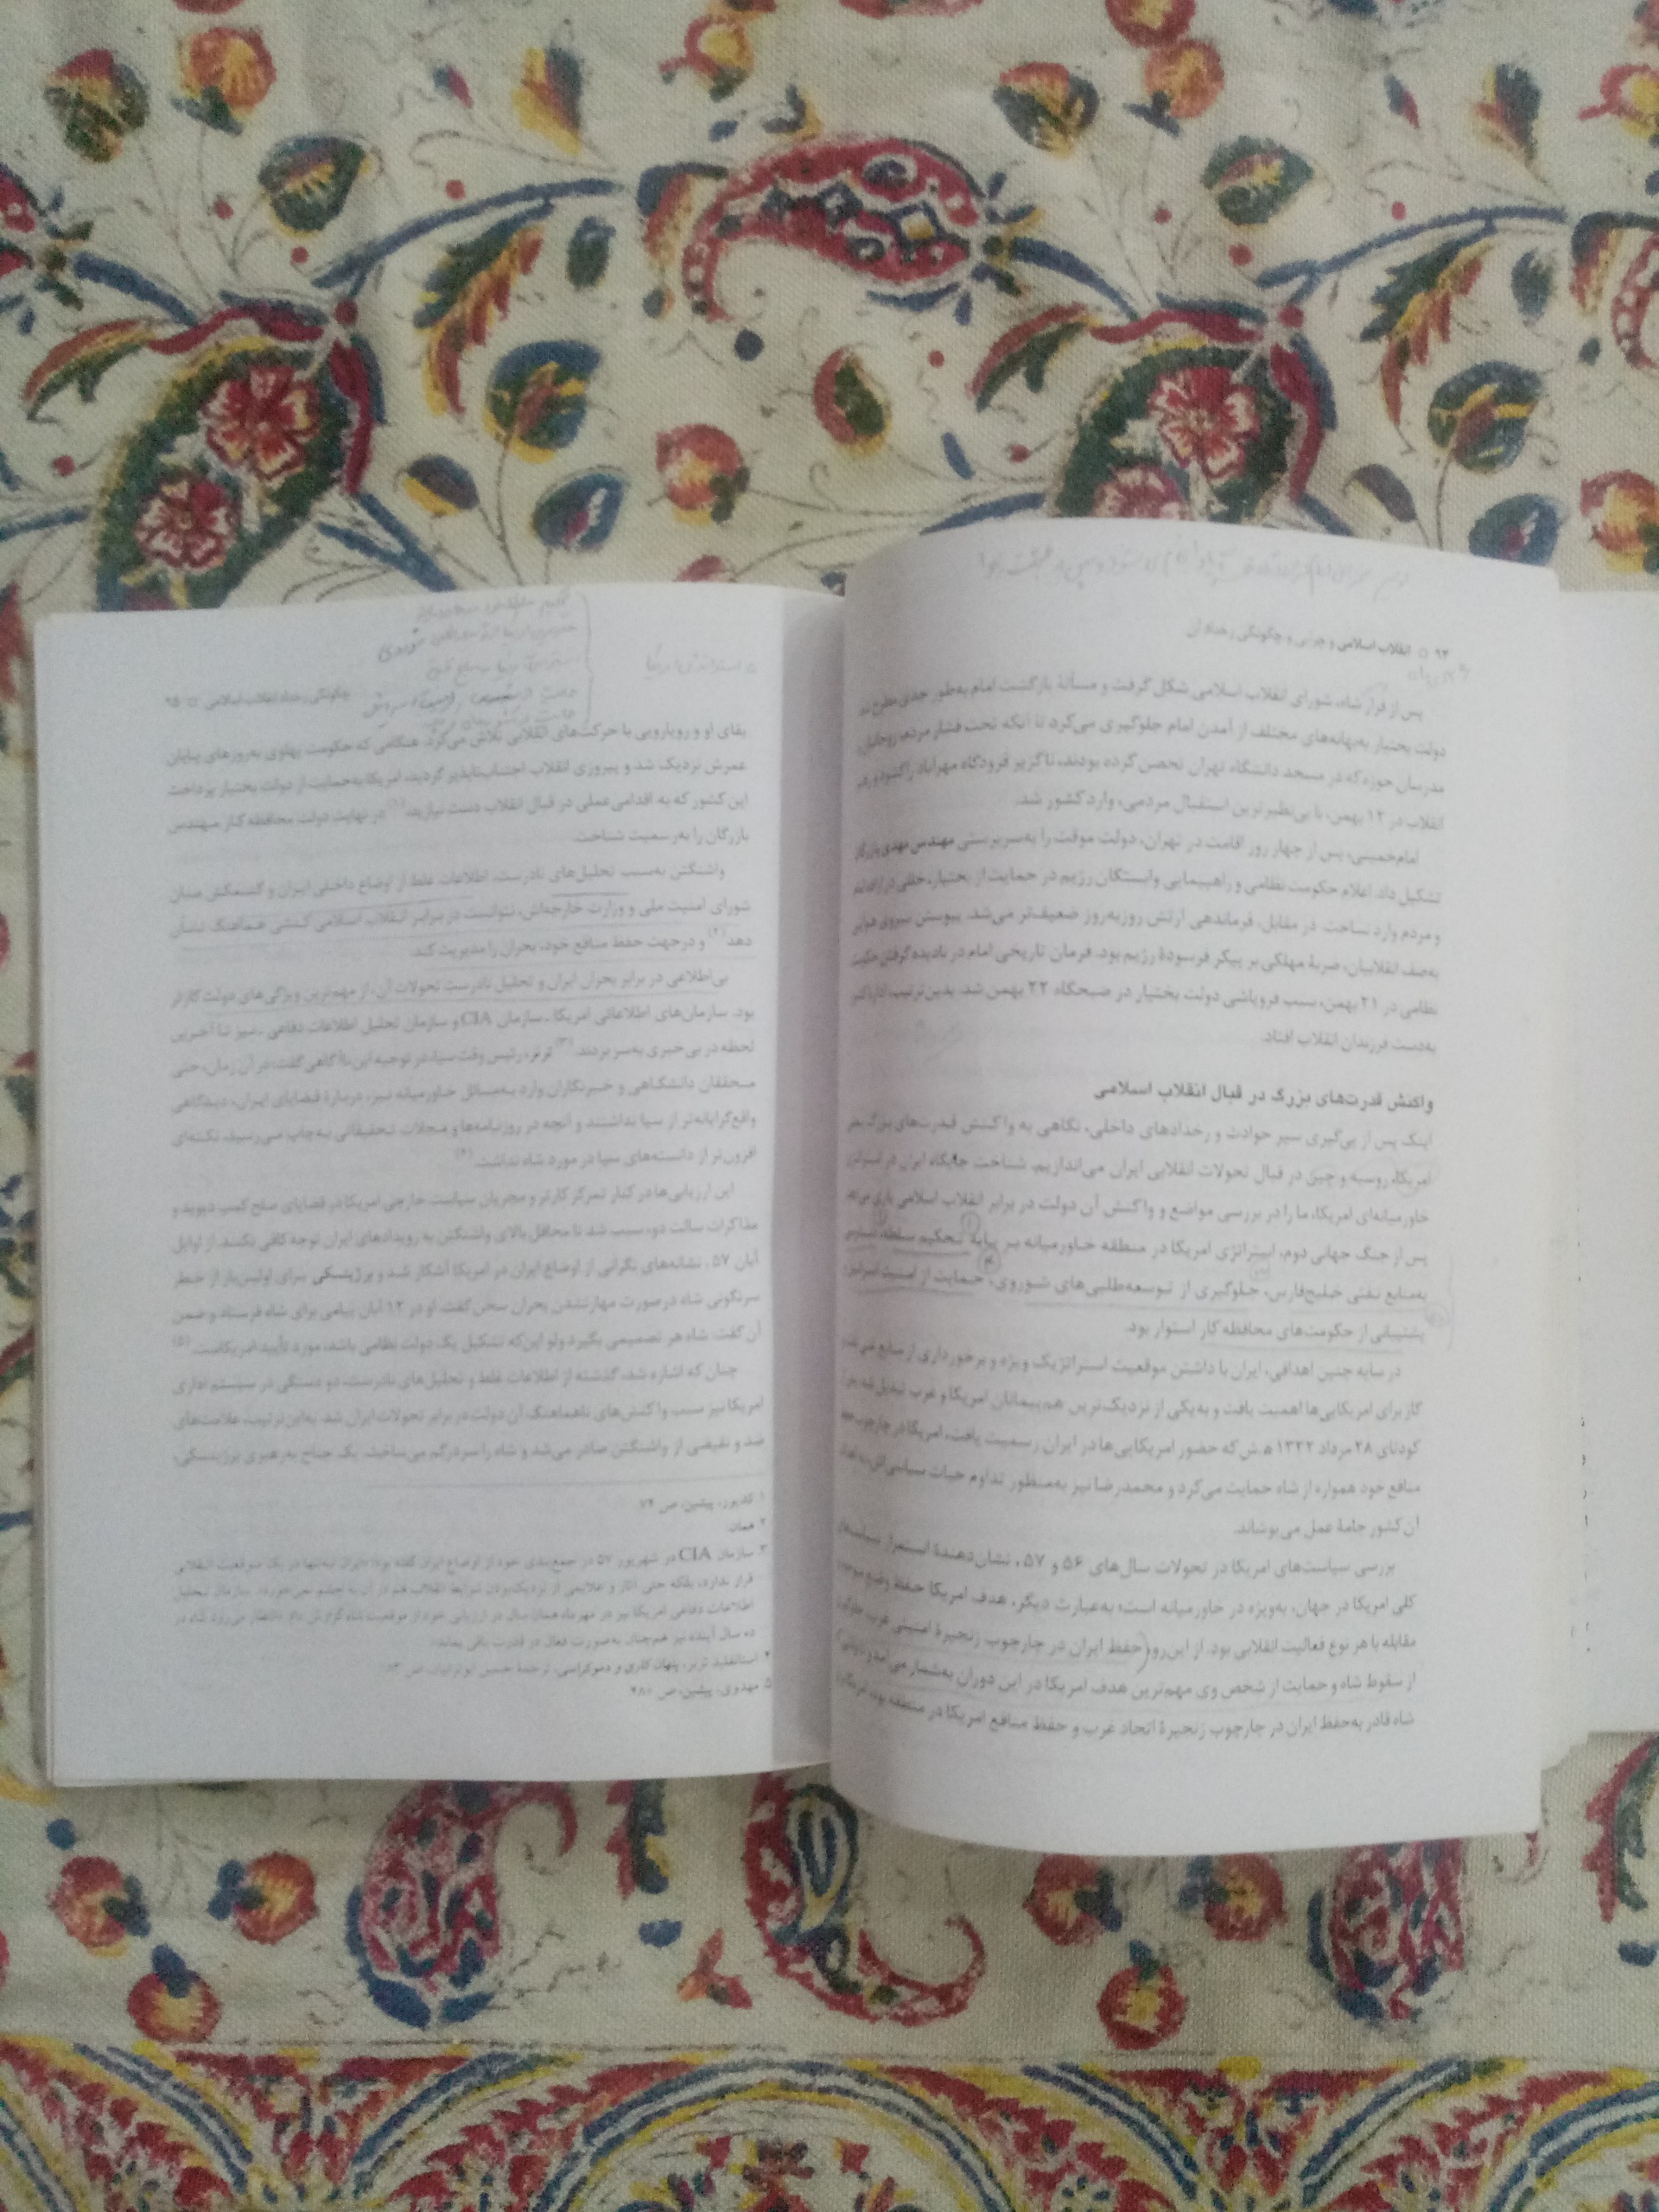 ۹۴ ○ انقلاب اسلامی و چرایی و چگونگی رخداد آن
پس از فرار شاه، شورای انقلاب اسلامی شکل گرفت و مسألهٔ بازگشت امام به‌طور جدی مطرح شد.
دولت بختیار به‌بهانه‌های مختلف از آمدن امام جلوگیری می‌کرد تا آنکه تحت فشار مردم، روحانیان و
مدرسان حوزه که در مسجد دانشگاه تهران تحصن کرده بودند، ناگزیر فرودگاه مهرآباد را گشود و رهبر
انقلاب در ۱۲ بهمن، با بی‌نظیرترین استقبال مردمی، وارد کشور شد.
امام‌خمینی، پس از چهار روز اقامت در تهران، دولت موقت را به‌سرپرستی مهندس مهدی بازرگان
تشکیل داد. اعلام حکومت نظامی و راهپیمایی وابستگان رژیم در حمایت از بختیار، خللی در ارادهٔ امام
و مردم وارد نساخت. در مقابل، فرماندهی ارتش روزبه‌روز ضعیف‌تر می‌شد. پیوستن نیروی هوایی
به‌صف انقلابیان، ضربهٔ مهلکی بر پیکر فرسودهٔ رژیم بود. فرمان تاریخی امام در نادیده گرفتن حکومت
نظامی در ۲۱ بهمن، سبب فروپاشی دولت بختیار در صبحگاه ۲۲ بهمن شد. بدین‌ترتیب، ادارهٔ کشور
به‌دست فرزندان انقلاب افتاد.
واکنش قدرت‌های بزرگ در قبال انقلاب اسلامی
اینک پس از پی‌گیری سیر حوادث و رخدادهای داخلی، نگاهی به واکنش قدرت‌های بزرگ یعنی
امریکا، روسیه و چین در قبال تحولات انقلابی ایران می‌اندازیم. شناخت جایگاه ایران در استراتژی
خاورمیانه‌ای امریکا، ما را در بررسی مواضع و واکنش آن دولت در برابر انقلاب اسلامی یاری می‌دهد.
پس از جنگ جهانی دوم، استراتژی امریکا در منطقه خاورمیانه بر پایهٔ تحکیم سلطه، دستیابی
به‌منابع نفتی خلیج‌فارس، جلوگیری از توسعه‌طلبی‌های شوروی، حمایت از امنیت اسرائیل و
پشتیبانی از حکومت‌های محافظه‌کار استوار بود.
در سایه چنین اهدافی، ایران با داشتن موقعیت استراتژیک ویژه و برخورداری از منابع غنی نفت و
گاز برای امریکایی‌ها اهمیت یافت و به‌یکی از نزدیک‌ترین هم‌پیمانان امریکا و غرب تبدیل شد. پس از
کودتای ۲۸ مرداد ۱۳۳۲ ه‍.ش که حضور امریکایی‌ها در ایران رسمیت یافت، امریکا در چارچوب حفظ
منافع خود همواره از شاه حمایت می‌کرد و محمدرضا نیز به‌منظور تداوم حیات سیاسی‌اش، به اهداف
آن کشور جامهٔ عمل می‌پوشاند.
بررسی سیاست‌های امریکا در تحولات سال‌های ۵۶ و ۵۷، نشان‌دهندهٔ استمرار سیاست‌های
کلی امریکا در جهان، به‌ویژه در خاورمیانه است؛ به‌عبارت دیگر، هدف امریکا حفظ وضع موجود و
مقابله با هر نوع فعالیت انقلابی بود. از این‌رو (حفظ ایران در چارچوب زنجیرهٔ امنیتی غرب، جلوگیری
از سقوط شاه و حمایت از شخص وی مهم‌ترین هدف امریکا در این دوران به‌شمار می‌آمد و
شاه قادر به‌حفظ ایران در چارچوب زنجیرهٔ اتحاد غرب و حفظ منافع امریکا در منطقه بود، امریکا
استراتژی امریکا
چگونگی رخداد انقلاب اسلامی ○ ۹۵
بقای او و رویارویی با حرکت‌های انقلابی تلاش می‌کرد. هنگامی که حکومت پهلوی به‌روزهای پایان
عمرش نزدیک شد و پیروزی انقلاب اجتناب‌ناپذیر گردید، امریکا به‌حمایت از دولت بختیار پرداخت.
این کشور که به اقدامی عملی در قبال انقلاب دست نیازید،(۱) در نهایت دولت محافظه‌کار مهندس
بازرگان را به‌رسمیت شناخت.
واشنگتن به‌سبب تحلیل‌های نادرست، اطلاعات غلط از اوضاع داخلی ایران و کشمکش میان
شورای امنیت ملی و وزارت خارجه‌اش، نتوانست در برابر انقلاب اسلامی کنشی هماهنگ نشان
دهد(۲) و در جهت حفظ منافع خود، بحران را مدیریت کند.
بی‌اطلاعی در برابر بحران ایران و تحلیل نادرست تحولات آن، از مهم‌ترین ویژگی‌های دولت کارتر
بود. سازمان‌های اطلاعاتی امریکا ـ سازمان CIA و سازمان تحلیل اطلاعات دفاعی ـ نیز تا آخرین
لحظه در بی‌خبری به‌سر بردند.(۳) ترنر، رئیس وقت سیا، در توجیه این ناآگاهی گفت: در آن زمان، حتی
محققان دانشگاهی و خبرنگاران وارد به‌مسائل خاورمیانه نیز، دربارهٔ قضایای ایران، دیدگاهی
واقع‌گرایانه‌تر از سیا نداشتند و آنچه در روزنامه‌ها و مجلات تحقیقاتی به‌چاپ می‌رسید، نکته‌ای
افزون‌تر از دانسته‌های سیا در مورد شاه نداشت.(۴)
این ارزیابی‌ها در کنار تمرکز کارتر و مجریان سیاست خارجی امریکا در قضایای صلح کمپ دیوید و
مذاکرات سالت دو، سبب شد تا محافل بالای واشنگتن به رویدادهای ایران توجه کافی نکنند. از اوایل
آبان ۵۷، نشانه‌های نگرانی از اوضاع ایران در امریکا آشکار شد و برژینسکی برای اولین‌بار از خطر
سرنگونی شاه درصورت مهارنشدن بحران سخن گفت. او در ۱۲ آبان پیامی برای شاه فرستاد و ضمن
آن گفت شاه هر تصمیمی بگیرد ولو این‌که تشکیل یک دولت نظامی باشد، مورد تأیید امریکاست.(۵)
چنان که اشاره شد، گذشته از اطلاعات غلط و تحلیل‌های نادرست، دو دستگی در سیستم اداری
امریکا نیز سبب واکنش‌های ناهماهنگ آن دولت در برابر تحولات ایران شد. به‌این‌ترتیب، علامت‌های
ضد و نقیضی از واشنگتن صادر می‌شد و شاه را سردرگم می‌ساخت. یک جناح به‌رهبری برژینسکی،
۱. کدیور، پیشین، ص ۷۴.
۲. همان.
۳. سازمان CIA در شهریور ۵۷ در جمع‌بندی خود از اوضاع ایران گفته بود: «ایران نه‌تنها در یک موقعیت انقلابی
قرار ندارد، بلکه حتی آثار و علایمی از نزدیک‌بودن شرایط انقلاب هم در آن به چشم نمی‌خورد». سازمان تحلیل
اطلاعات دفاعی امریکا نیز در مهرماه همان سال در ارزیابی خود از موقعیت شاه گزارش داد «انتظار می‌رود شاه در
ده سال آینده نیز هم‌چنان به‌صورت فعال در قدرت باقی بماند».
۴. استانفیلد ترنر، پنهان‌کاری و دموکراسی، ترجمهٔ حسین ابوترابیان، ص
۵. مهدوی، پیشین، ص ۴۸۰